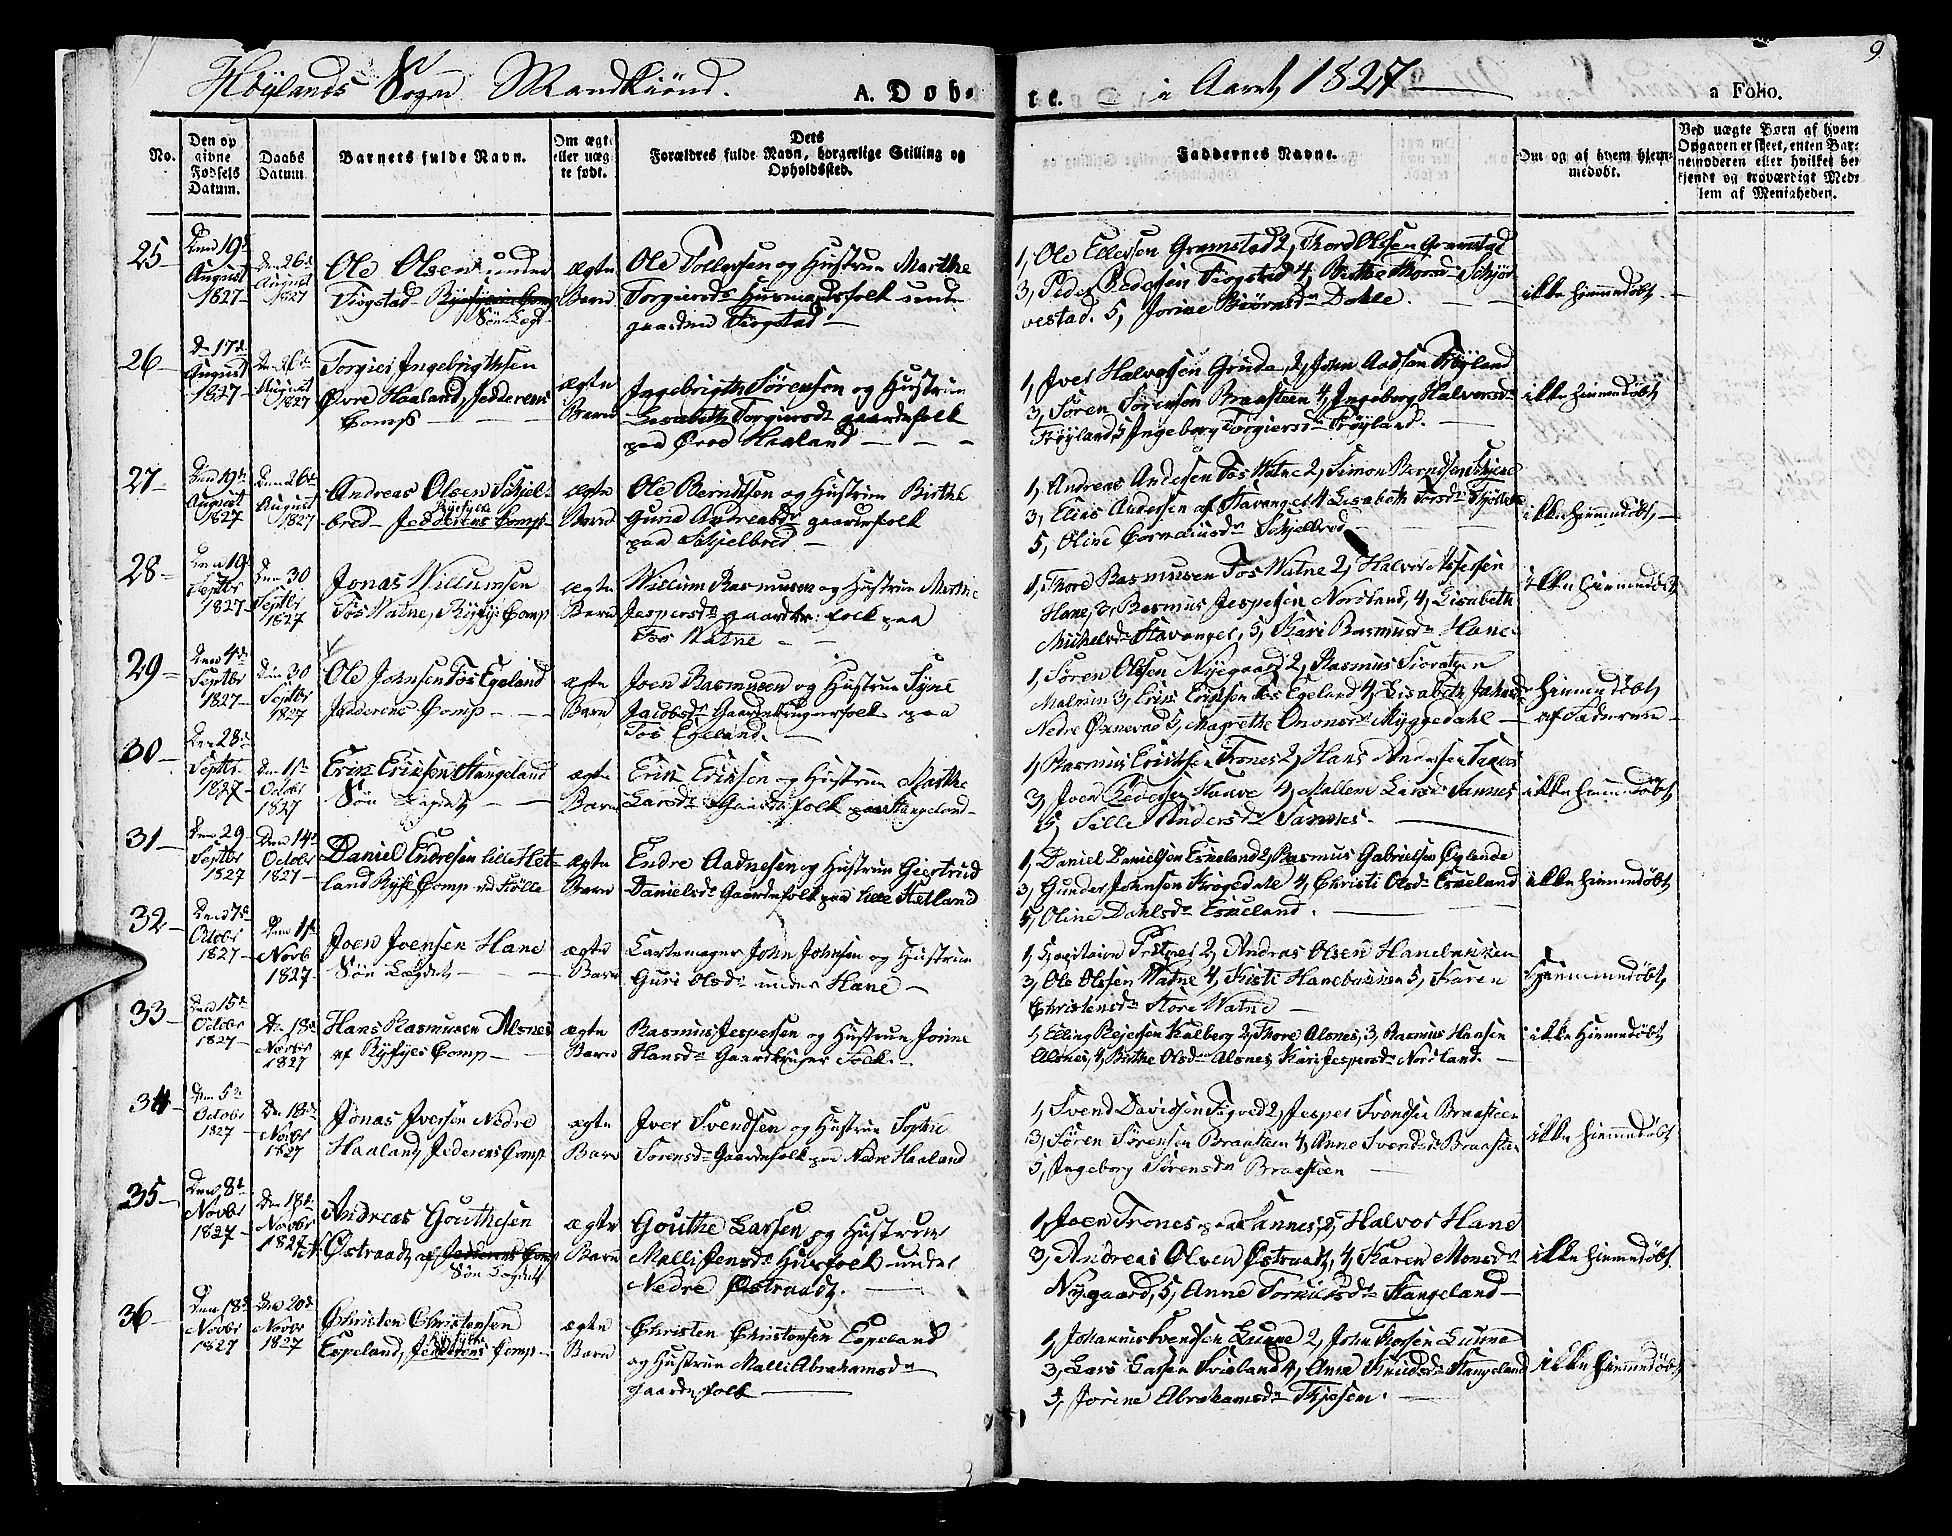 Höylands Sogn Mandkiönd.
A. Døb-
te.
i Aaret 1827
a Folio.
9
No.
Den op
givne
Fødsels
Datum.
Daabs
Datum
Barnets fulde Navn.
Om ægte
eller uæg-
te født.
Dets
Forældres fulde Navn, borgerlige Stilling og
Opholdssted.
Faddernes Navne.
Om og af hvem hjem-
medøbt.
Ved uægte Børn af hvem
Opgaven er skeet, enten Bar-
nemoderen eller hvilket be-
kjendt og troværdigt Med-
lem af Menigheden.
25
Den 19d
August
1827
Den 26d
August
1827
Ole Olsen under
Tiogstad
Søn Lægd
ægte
Barn
Ole Tollersen og Hustrue Marthe
Torgiersdr Husmandsfolk under
gaarden Tiogstad
1, Ole Ellersen Gramstad 2, Thord Olsen Gramstad
3, Peder Pedersen Tiogstad 4, Berthe Thorsdr Schiør-
vestad. 5, Jorine Biörnsdr Dahle.
ikke hiemmedøbt
26
Dn 17d
August
1827
Dn 26d
August
1827
Torgier Ingebrigthsen
Øvre Haaland, Jedderens
Comp
ægte
Barn
Ingebrigth Sørensen og Hustrue
Lisabeth Torgiersdr gaardefolk
paa Øvre Haaland
1, Iver Halvorsen Grude, 2, John Aadsen Frøyland
3, Søren Sørensen Braasteen 4, Ingeborg Halvorsdr
Frøyland 5, Ingeborg Torgiersdr Frøyland.
ikke hiemmedøbt
27
Den 19d
August
1827
Den 26d
August
1827
Andreas Olsen Schiel-
bred Jedderens Comp
Ryefyes
ægte
Barn
Ole Berndtsen og Hustrue Birthe
Guria Andreasdr gaardefolk
paa Schjelbred
1, Andreas Andersen Fos Watne 2, Simon Berndtsen
3, Elias Andersen af Stavanger 4, Lisabeth
5, Oline Corneliusdr Schjelbred
ikke hiemmedøbt
28
Den 19
Septbr
1827
Den 30
Septbr
1827
Jonas Willumsen
Fos Watne, Ryfy: Comp
ægte
Barn
Willum Rasmusen og Hustrue Marthe
Jespersdr gaarde folk paa
Fos Watne
1, Thore Rasmusen Fos Watne 2, Halvor
Hane, 3, Rasmus Jespersen Nordland, 4, Lisabeth
Michelsdr Stavanger, 5, Kari Rasmusdr Hane
ikke hiemmedøbt
29
Den 4d
Septbr
1827
Den 30
Septbr
1827
Ole Johnsen Fos Egeland
Jedderens Comp
ægte
Barn
Joen Rasmusen og Hustrue Syne
Jacobsdr Gaardbrugerfolk paa
Fos Egeland.
1, Søren Olsen Nyegaard 2, Rasmus
Malmin 3, Erik Eriksen Fos Egeland 4, Lisabeth
Nedre 5, Magrethe Myggedahl
hiemmedøbt
af Faderen
30
Den 28d
Septbr
1827
Den 1ste
Octobr
1827
Erik Eriksen Stangeland
Søn Lægdet
ægte
Barn
Erik Eriksen og Hustrue Marthe
Larsdr Gaardefolk paa Stangeland
1, Rasmus Eriksen Trones 2, Hans Andersen Sannes
3, Joen Pedersen Hauve 4, Mallene Larsdr Sannes
5, Sille Andersdr Sannes.
ikke hiemmedøbt
31
Den 29
Septbr
1827
Den 14d
Octobr
1827
Daniel Endresen lille Het-
land Ryfy: Comp
ægte
Barn
Endre Aadnesen og Hustrue Giertrud
Danielsdr Gaardefolk paa lille Hetland
1, Daniel Danielsen Eskeland 2, Rasmus Gabrielsen Øglende
3, Gunder Johnsen Krogedale 4, Christi Olsdr Eskeland
5, Oline Dahlsdr Eskeland.
ikke hiemmedøbt
32
Den 7d
Octobr
1827
Den 11
Novb
1827
Joen Joensen Hane
Søn Lægdet
ægte
Barn
Cartemager John Johnsen og Hustrue
Guri Olsdr under Hane
1, Capitaine 2, Andreas Olsen Hanebakken
3, Ole Olsen Watne 4, Kisti Hanebakken 5, Karen
Christensdr Store Watne
Hiemmedøbt
33
Den 15d
Octobr
1827
Dn 18d
Novbr
1827
Hans Rasmusen Alsnes
af Ryfyes Comp
ægte
Barn
Rasmus Jespersen og Hustrue Jorine
Hansdr Gaardbruger Folk.
1, Elling Reiersen Kalberg 2, Thore Alsnes, 3, Rasmus Hansen
Alsnes, 4, Birthe Olsdr Alsnes, Kari Jespersdr Nordland.
ikke hiemmedøbt
34
Den 5te
Octobr
1827
Dn 18d
Novbr
1827
Jonas Iversen Nedre
Haaland, Jederens Comp
ægte
Barn
Iver Svendsen og Hustrue Sophie
Sorensdr Gaardefolk paa Nedre Haaland
1, Svend Davidsen Figved 2, Jesper Svendsen Braasteen
3, Søren Sørensen Braasteen 4, Anne Svendsdr Braasteen
5, Ingeborg Sørensdr Braasteen
ikke hiemmedøbt
35
Den 8d
Novbr
1827
Dn 18d
Novbr
1827
Andreas Gouthesen
Østraadt af Jedderens Comp
Søn Lægdet
ægte
Barn
Gouthe Larsen og Hustrue
Malli Jensdr Husfolk under
Nedre Østraadt.
1, Joen Trones paa Sannes, 2, Halvor Hane
3, Andreas Olsen Østraadt, 4, Karen Monsdr
Nygaard, 5, Anne Stangeland
ikke hiemmedøbt
36
Den 18d
Novbr
1827
Den 20d
Novbr
1827
Christen Christensen
Espeland, Jedderens Comp
Ryfyes
ægte
Barn
Christen Christensen Espeland
og Hustrue Malli Abrahamsdr
gaardefolk
1, Johannes Svendsen Lunne 2, John Lunne
3, Lars Larsen 4, Anne Knudsdr Stangeland
5, Jorine Abrahamsdr
ikke hiemmedøbt